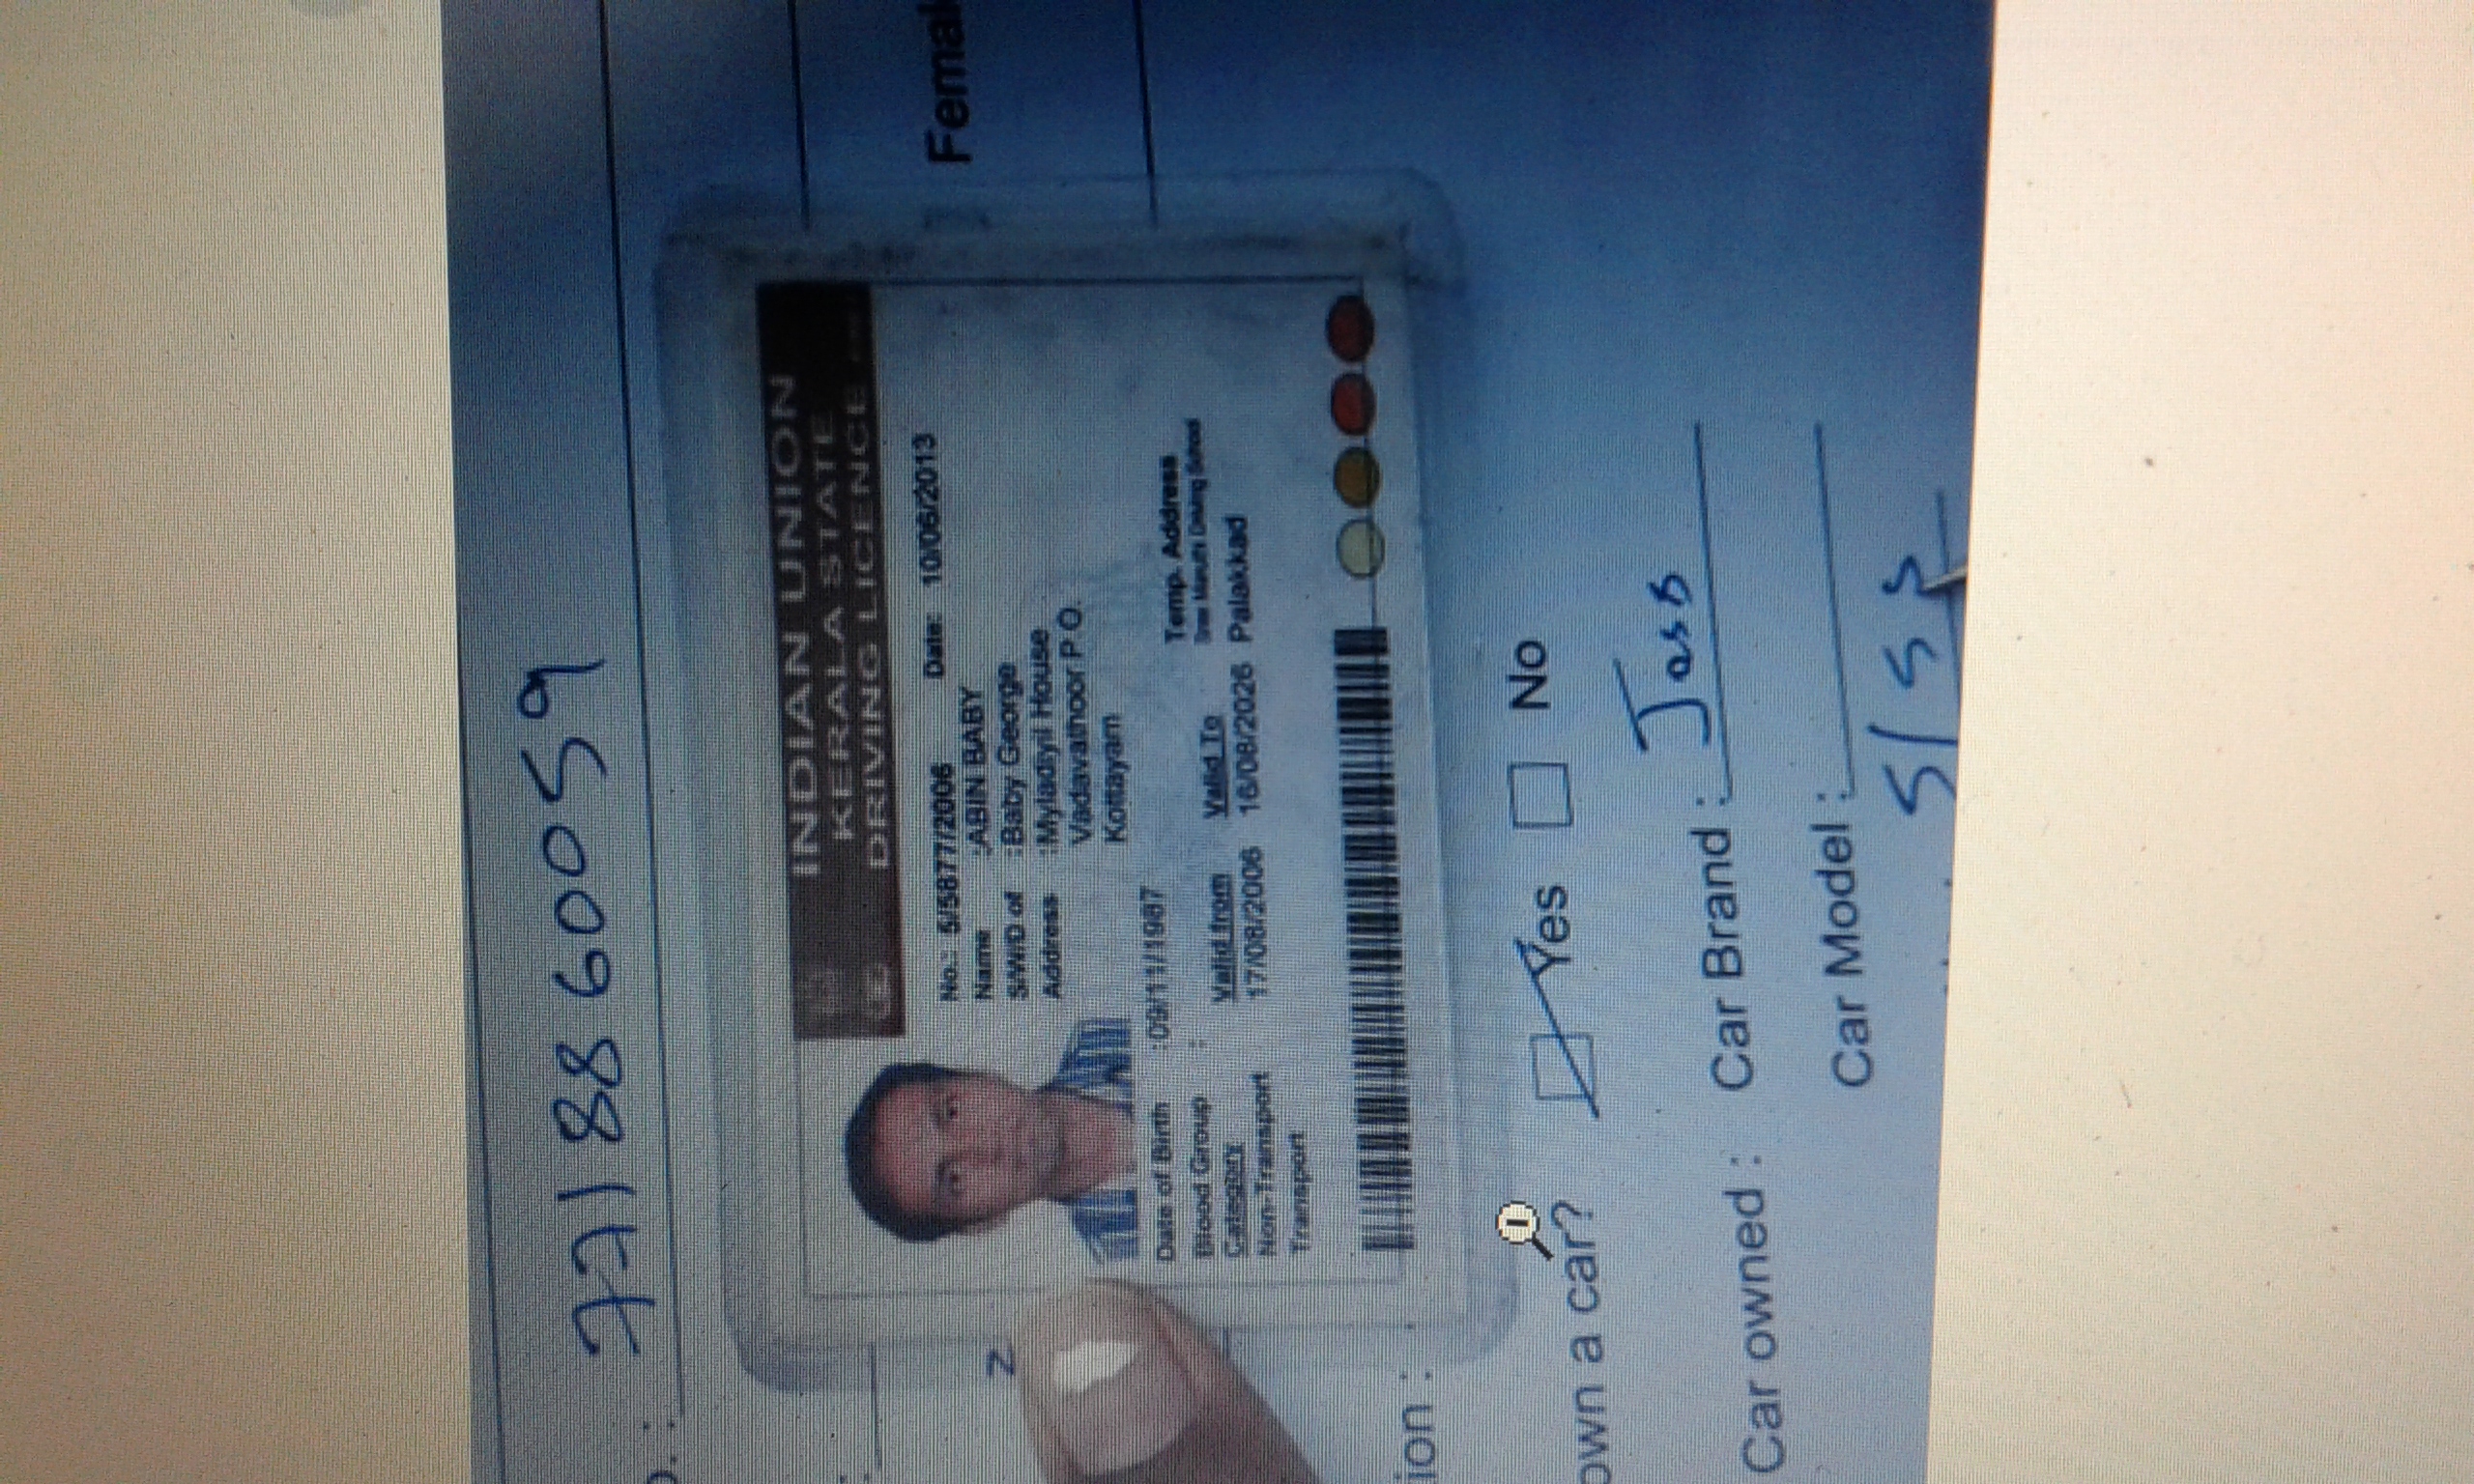 7718860059
Female
INDIAN UNION
KERALA STATE
DRIVING LICENCE
No.: 5/5877/2006 Date: 10/06/2013
Name :ABIN BABY
S/W/D of :Baby George
Address :Myladiyil House
Vadavathoor P.O.
Kottayam
Date of Birth :09/11/1987
Blood Group :
Temp. Address
Category Valid from Valid To
Non-Transport 17/08/2006 16/08/2026 Palakkad
Transport
ion :
own a car? Yes No
Car owned : Car Brand :
Car Model :